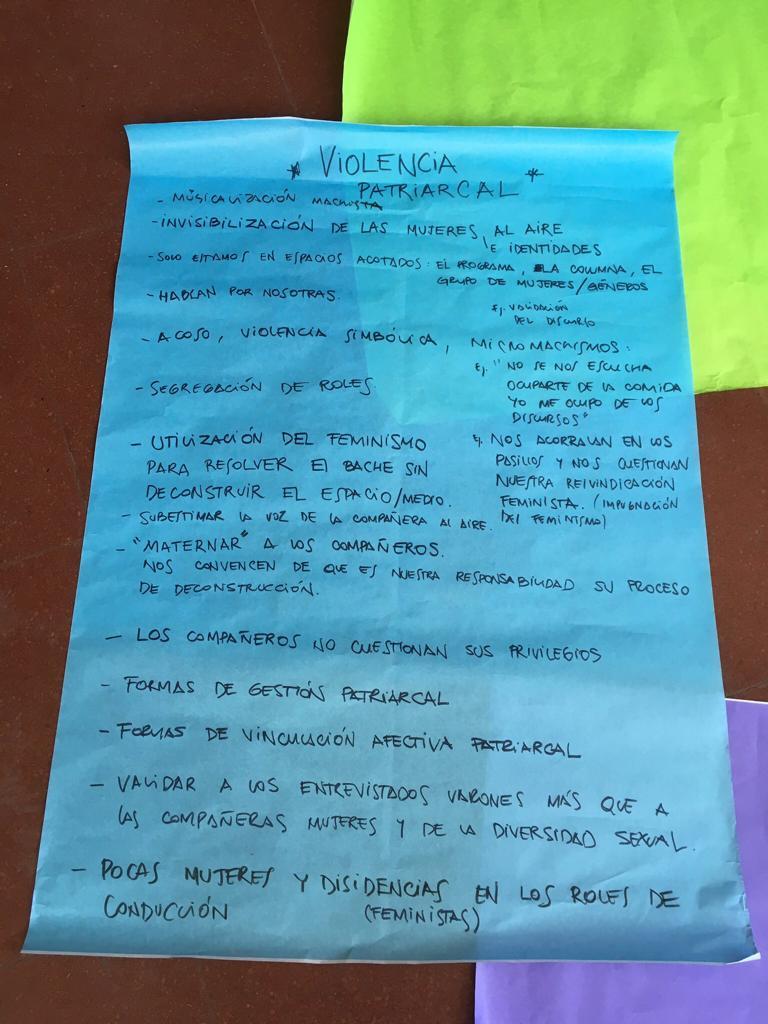 * VIOLENCIA *
PATRIARCAL
- MÚSICALIZACIÓN MACHISTA
- INVISIBILIZACIÓN DE LAS MUJERES AL AIRE
E IDENTIDADES
- SOLO ESTAMOS EN ESPACIOS ACOTADOS: EL PROGRAMA, LA COLUMNA, EL
GRUPO DE MUJERES/GÉNEROS
- HABLAN POR NOSOTRAS.
Ej. VALIDACIÓN
DEL DISCURSO
- ACOSO, VIOLENCIA SIMBÓLICA, MICROMACHISMOS:
Ej. "NO SE NOS ESCUCHA
OCUPARTE DE LA COMIDA
YO ME OCUPO DE LOS
DISCURSOS"
- SEGREGACIÓN DE ROLES.
Ej. NOS ACORRALAN EN LOS
PASILLOS Y NOS CUESTIONAN
NUESTRA REIVINDICACIÓN
FEMINISTA. (IMPUGNACIÓN
DEL FEMINISMO)
- UTILIZACIÓN DEL FEMINISMO
PARA RESOLVER El BACHE SIN
DECONSTRUIR EL ESPACIO/MEDIO.
- SUBESTIMAR LA VOZ DE LA COMPAÑERA AL AIRE.
- "MATERNAR" A LOS COMPAÑEROS.
NOS CONVENCEN DE QUE ES NUESTRA RESPONSABILIDAD SU PROCESO
DE DECONSTRUCCIÓN.
- LOS COMPAÑEROS NO CUESTIONAN SUS PRIVILEGIOS
- FORMAS DE GESTIÓN PATRIARCAL
- FORMAS DE VINCULACIÓN AFECTIVA PATRIARCAL
- VALIDAR A LOS ENTREVISTADOS VARONES MÁS QUE A
LAS COMPAÑERAS MUJERES Y DE LA DIVERSIDAD SEXUAL.
- POCAS MUJERES Y DISIDENCIAS EN LOS ROLES DE
CONDUCCIÓN (FEMINISTAS)